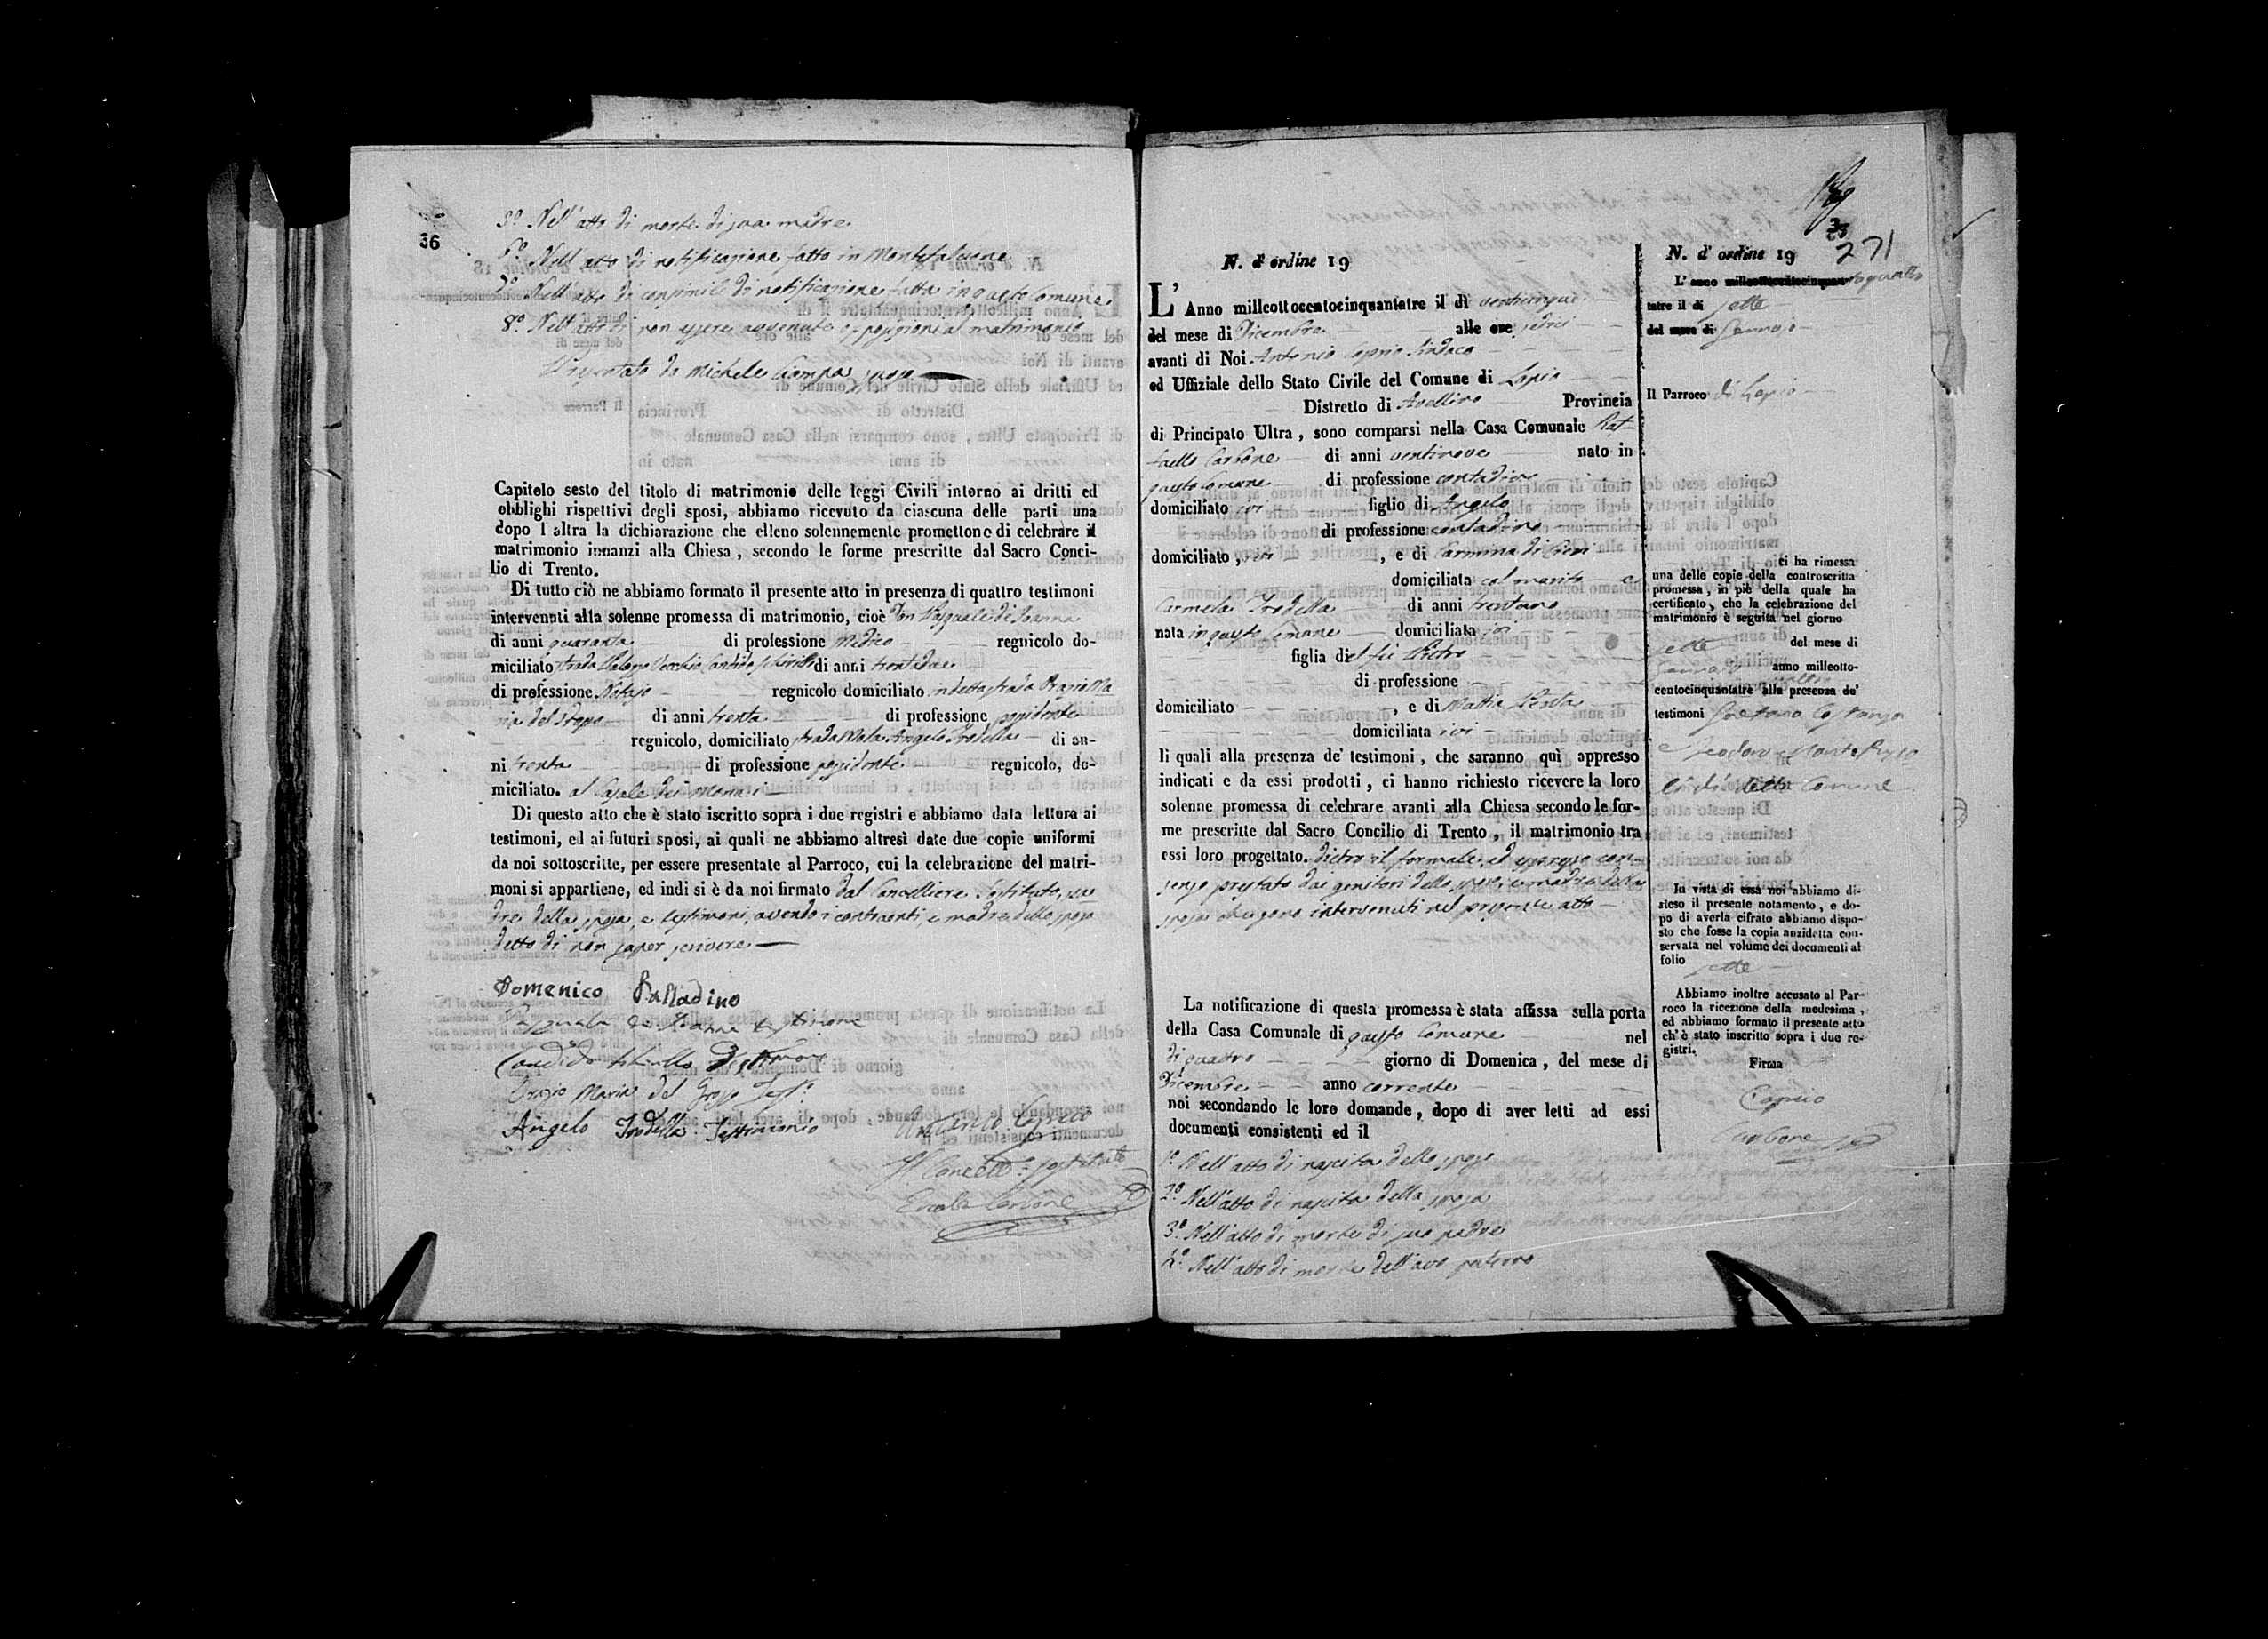 36
5º Nell'atto di morte di sua madre
6º Nell'atto di notificazione fatto in Montefalcione
7º Nell'atto di consimile di notificazione fatta in questo Comune
8º Nell'atto di non essere avvenute opposizioni al matrimonio
Presentato da Michele Ciampa sposo
Capitolo sesto del titolo di matrimonio delle leggi Civili intorno ai dritti ed
obblighi rispettivi degli sposi, abbiamo ricevuto da ciascuna delle parti una
dopo l altra la dichiarazione che elleno solennemente promettono di celebrare il
matrimonio innanzi alla Chiesa, secondo le forme prescritte dal Sacro Conci-
lio di Trento.
Di tutto ciò ne abbiamo formato il presente atto in presenza di quattro testimoni
intervenuti alla solenne promessa di matrimonio, cioè Don Pasquale de Joanna
di anni quaranta di professione Medico regnicolo do-
miciliato strada Palazzo Vecchio Candido di anni trentadue
di professione Notajo regnicolo domiciliato in detta strada Orazio Ma
ria del Grosso di anni trenta di professione possidente
regnicolo, domiciliato strada Angelo Trodella di an-
ni trenta di professione possidente regnicolo, do-
miciliato. al Casale dei Monaci
Di questo atto che è stato iscritto sopra i due registri e abbiamo data lettura ai
testimoni, ed ai futuri sposi, ai quali ne abbiamo altresì date due copie uniformi
da noi sottoscritte, per essere presentate al Parroco, cui la celebrazione del matri-
moni si appartiene, ed indi si è da noi firmato dal Cancelliere Sostituto, pa
dre della sposa, e testimoni, avendo i contraenti, e madre dello sposo
detto di non saper scrivere
Domenico Palladino
Pasquale de Joanna testimone
Candido
Orazio Maria del Grosso Test.º
Angelo Trodella Testimonio
Antonio Caprio
Il Cancell.e sostituto
Ercole Carbone
271
N. d' ordine 19
L' Anno milleottocentocinquantatre il dì venticinque
del mese di Dicembre alle ore sedici
avanti di Noi Antonio Caprio Sindaco
ed Uffiziale dello Stato Civile del Comune di Lapio
Distretto di Avellino Provincia
di Principato Ultra, sono comparsi nella Casa Comunale Raf-
faello Carbone di anni ventinove nato in
questo Comune di professione contadino
domiciliato ivi figlio di Angelo
di professione contadino
domiciliato, ivi, e di Carmina di
domiciliata col marito e
Carmela Trodella di anni trentuno
nata in questo Comune domiciliata ivi
figlia del fu Pietro
di professione
domiciliato , e di Mattia Penta
domiciliata ivi
li quali alla presenza de' testimoni, che saranno quì appresso
indicati e da essi prodotti, ci hanno richiesto ricevere la loro
solenne promessa di celebrare avanti alla Chiesa secondo le for-
me prescritte dal Sacro Concilio di Trento, il matrimonio tra
essi loro progettato. dietro il formale, ed espresso con-
senso prestato dai genitori dello sposo, e madre della
sposa che sono intervenuti nel presente atto
La notificazione di questa promessa è stata affissa sulla porta
della Casa Comunale di questo Comune nel
dì quattro giorno di Domenica, del mese di
Dicembre anno corrente
noi secondando le loro domande, dopo di aver letti ad essi
documenti consistenti ed il
1º Nell'atto di nascita dello sposo
2º Nell'atto di nascita della sposa
3º Nell'atto di morte di suo padre
4º Nell'atto di morte dell'avo paterno
N. d' ordine 19
L' anno milleottocentocinquan taquattro
tatre il di sette
del mese di Gennajo
Il Parroco di Lapio
ci ha rimessa
una delle copie della controscritta
promessa, in piè della quale ha
certificato, che la celebrazione del
matrimonio è seguita nel giorno
sette del mese di
Gennajo anno milleotto-
centocinquantatrè alla presenza de'
testimoni Gaetano Costanzo
e Teodoro
di detto Comune
In vista di essa noi abbiamo di-
steso il presente notamento, e do-
po di averla cifrato abbiamo dispo-
sto che fosse la copia anzidetta con-
servata nel volume dei documenti al
folio sette
Abbiamo inoltre accusato al Par-
roco la ricezione della medesima,
ed abbiamo formato il presente atto
ch' è stato inscritto sopra i due re-
gistri.
Firma
Caprio
Carbone